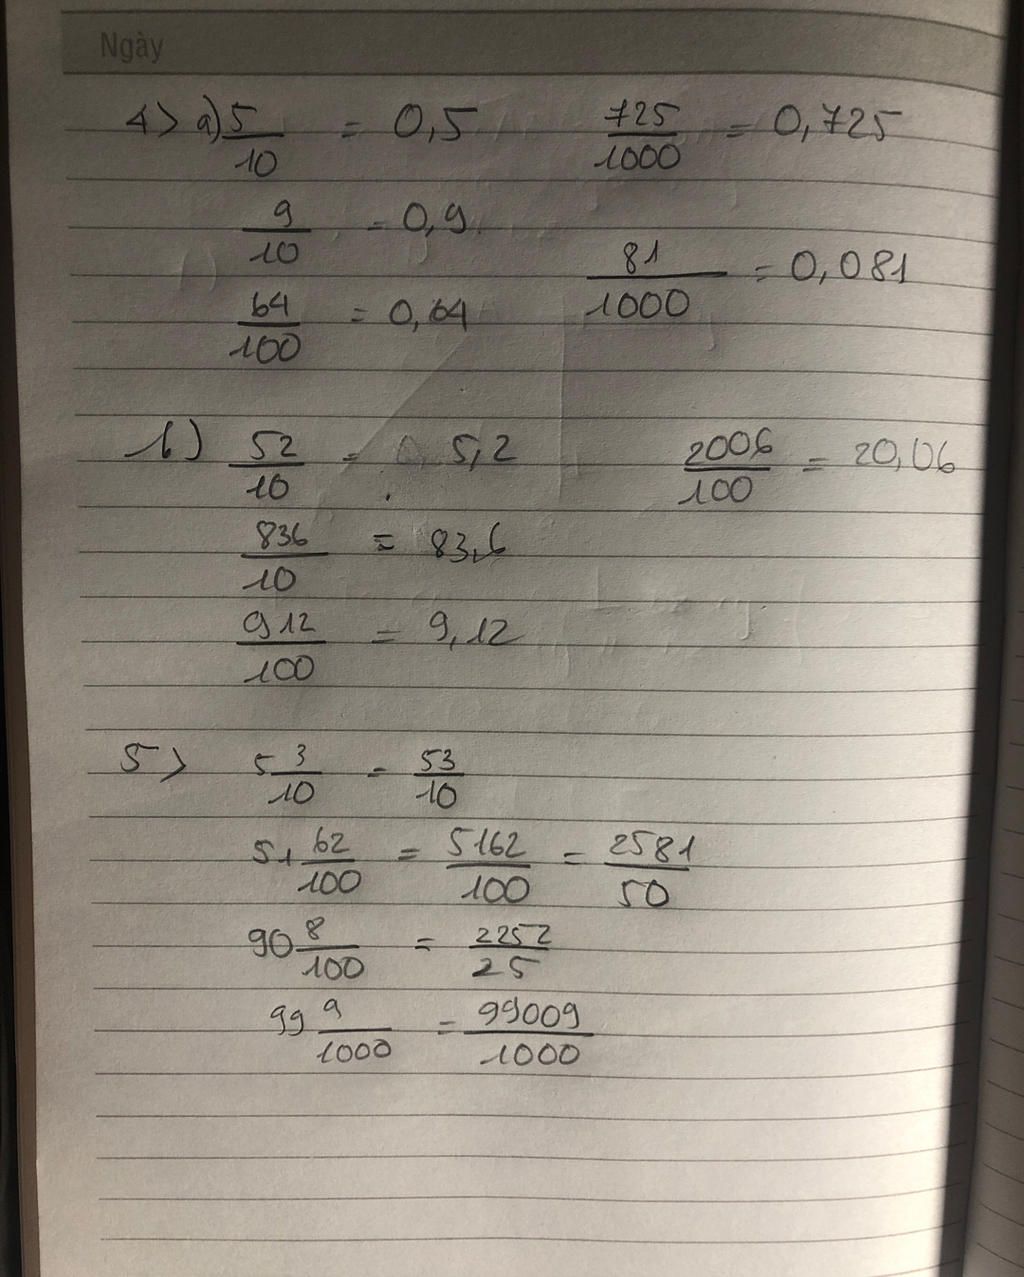 Ngày
4> a) 5/10 = 0,5 725/1000 = 0,725
9/10 = 0,9
81/1000 = 0,081
64/100 = 0,64
b) 52/10 = 5,2 2006/100 = 20,06
836/10 = 83,6
912/100 = 9,12
5> 5 3/10 = 53/10
51 62/100 = 5162/100 = 2581/50
90 8/100 = 2252/25
99 9/1000 = 99009/1000